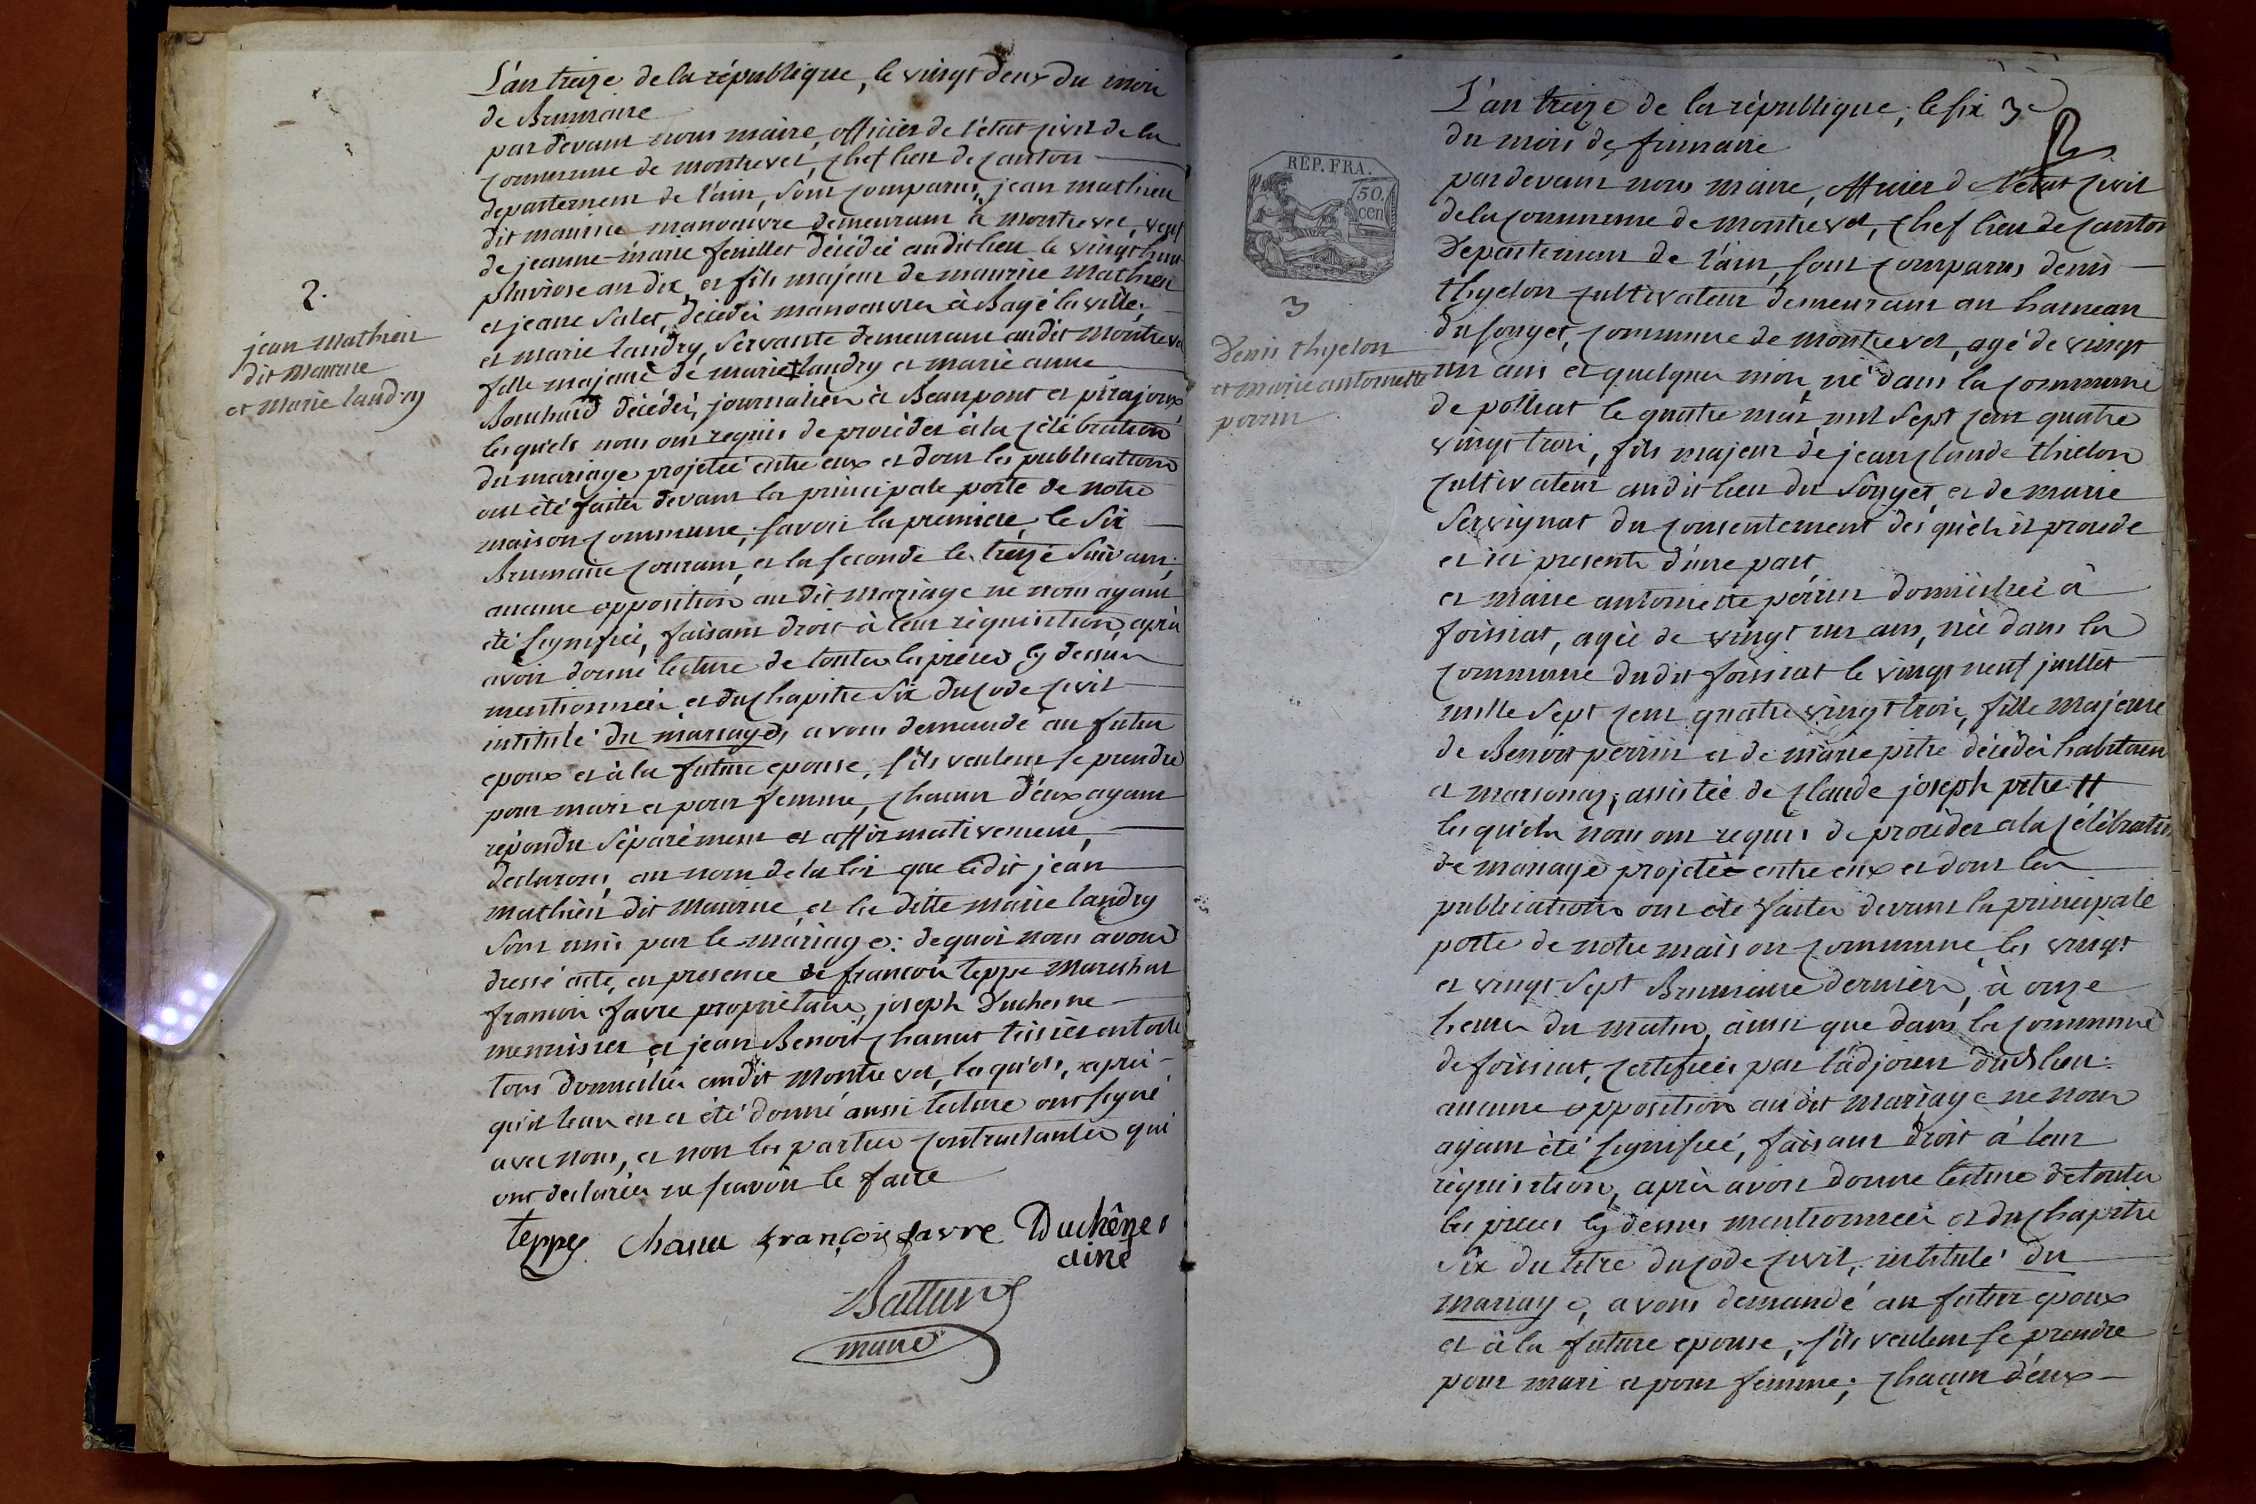 L'an treize de la république, le vingt deux du mois
de Brumaire
par devant nous maire, officier de l'état civil de la
commune de montrevel, chef lieu de canton
departement de l'ain, sont comparus, jean mathieu
dit maurice manoeuvre demeurant à montrevel, veuf
de jeanne-marie feuillet décédée audit lieu le vingt huit
pluviose an dix, et fils majeur de maurice mathieu
et jeane Salet, décédés manoeuvres à Bagé la ville,
et marie landry, servante demeurant audit montrevel
fille majeure de marie + landry et marie anne
Bouchard décédés, journaliers à Beaupont et pirajoux,
lesquels nous ont requis de procéder à la célébration
du mariage projetté entre eux et dont les publications
ont été faites devant la principale porte de notre
maison commune, savoir la premiere, le Six
Brumaire courant, et la seconde le treize suivant;
aucune opposition au dit mariage ne nous ayant
été signifiée, faisant droit à leur réquisition, après
avoir donné lecture de toutes les pièces cy dessus
mentionnées, et du chapitre six du code civil
intitulé du mariage, avons demandé au futur
epoux et à la future epouse, s'ils veulent se prendre
pour mari et pour femme, chacun d'eux ayant
répondu séparément et affirmativement,
declarons, au nom de la loi que ledit jean
mathieu dit Maurice et la ditte marie landry
sont unis par le mariage: de quoi nous avons
dressé acte, en presence de françois teppe marechal
françois favre propriétaire, joseph Duchesne
menuisier et jean Benoit chanut tissier en toile
tous domiciliés audit Montrevel, lesquels, après
qu'il leur en a été donné aussi lecture ont signé
avec nous, et non les parties contractantes qui
ont declarées ne savoir le faire
teppe chanu françois favre Duchêne
ainé
maire
2.
jean Mathieu
dit Maurice
et Marie landry
L'an treize de la république, le six 3e
du mois de frimaire
par devant nous maire, officier de l'état civil
de la commune de montrevel, chef lieu de canton
Departement de l'ain, sont comparus denis
thyelon cultivateur demeurant au hameau
du souget, commune de montrevel, agé de vingt
un ans et quelques mois, né dans la commune
de polliat le quatre mai mil sept cent quatre
vingt trois, fils majeur de jean claude thielon
cultivateur audit lieu du Souget, et de marie
Servignat du consentement desquels il procede
et ici presents d'une part,
et marie antoinette perrin domiciliée à
foissiat, agée de vingt un ans, née dans la
commune dudit foissiat le vingt neuf juillet
mille sept cent quatre vingt trois, fille majeure
de Benoit perrin et de marie pitre décédés habitans
a marsonas, assistée de claude joseph pitre #
lesquels nous ont requis de procéder a la célébration
de mariage projetée entre eux et dont les
publications ont été faites devant la principale
porte de notre maison commune les vingt
et vingt Sept Brumaire dernier, à onze
heures du matin, ainsi que dans la commune
de foissiat, certifiées par l'adjoint dudit lieu:
aucune opposition au dit mariage ne nous
ayant été signifiée, faisant droit à leur
réquisition, après avoir donné lecture de toutes
les pieces cy dessus mentionnées et du chapitre
Six du titre du code civil, intitulé du
mariage, avons demandé au futur epoux
et à la future epouse, s'ils veulent se prendre
pour mari et pour femme; chacun d'eux
REP. FRA.
50.
cen
3
Denis thyelon
et marie antoinette
perrin